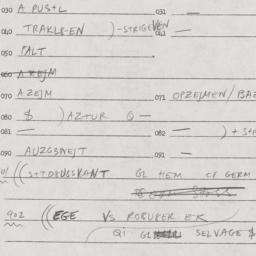 030 A PUSTL 031 —
040 TRAKLIEN )-STRIGEVEN 041 —
050 FALT
060 A ZEJM
070 A ZEJM 071 OPZEJMEN/BAZ
080 $ ) AZTUR Q —
081 — 082 — ) + STE
090 AUZGSHEJT 091 —
GL HEM CF GERM
902 ((EGE VS ROBUKER EK
QI GL SELVAGE $